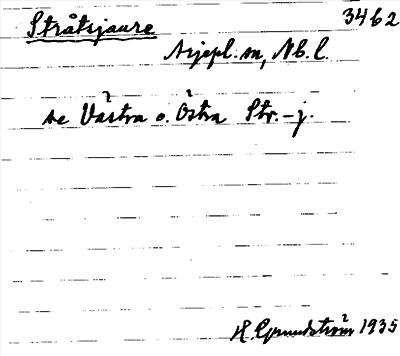 Stråtsjaure 3462
Arjepl. sn, Nb. l.
se Västra o. Östra Str.-j.
H. Grundström 1935